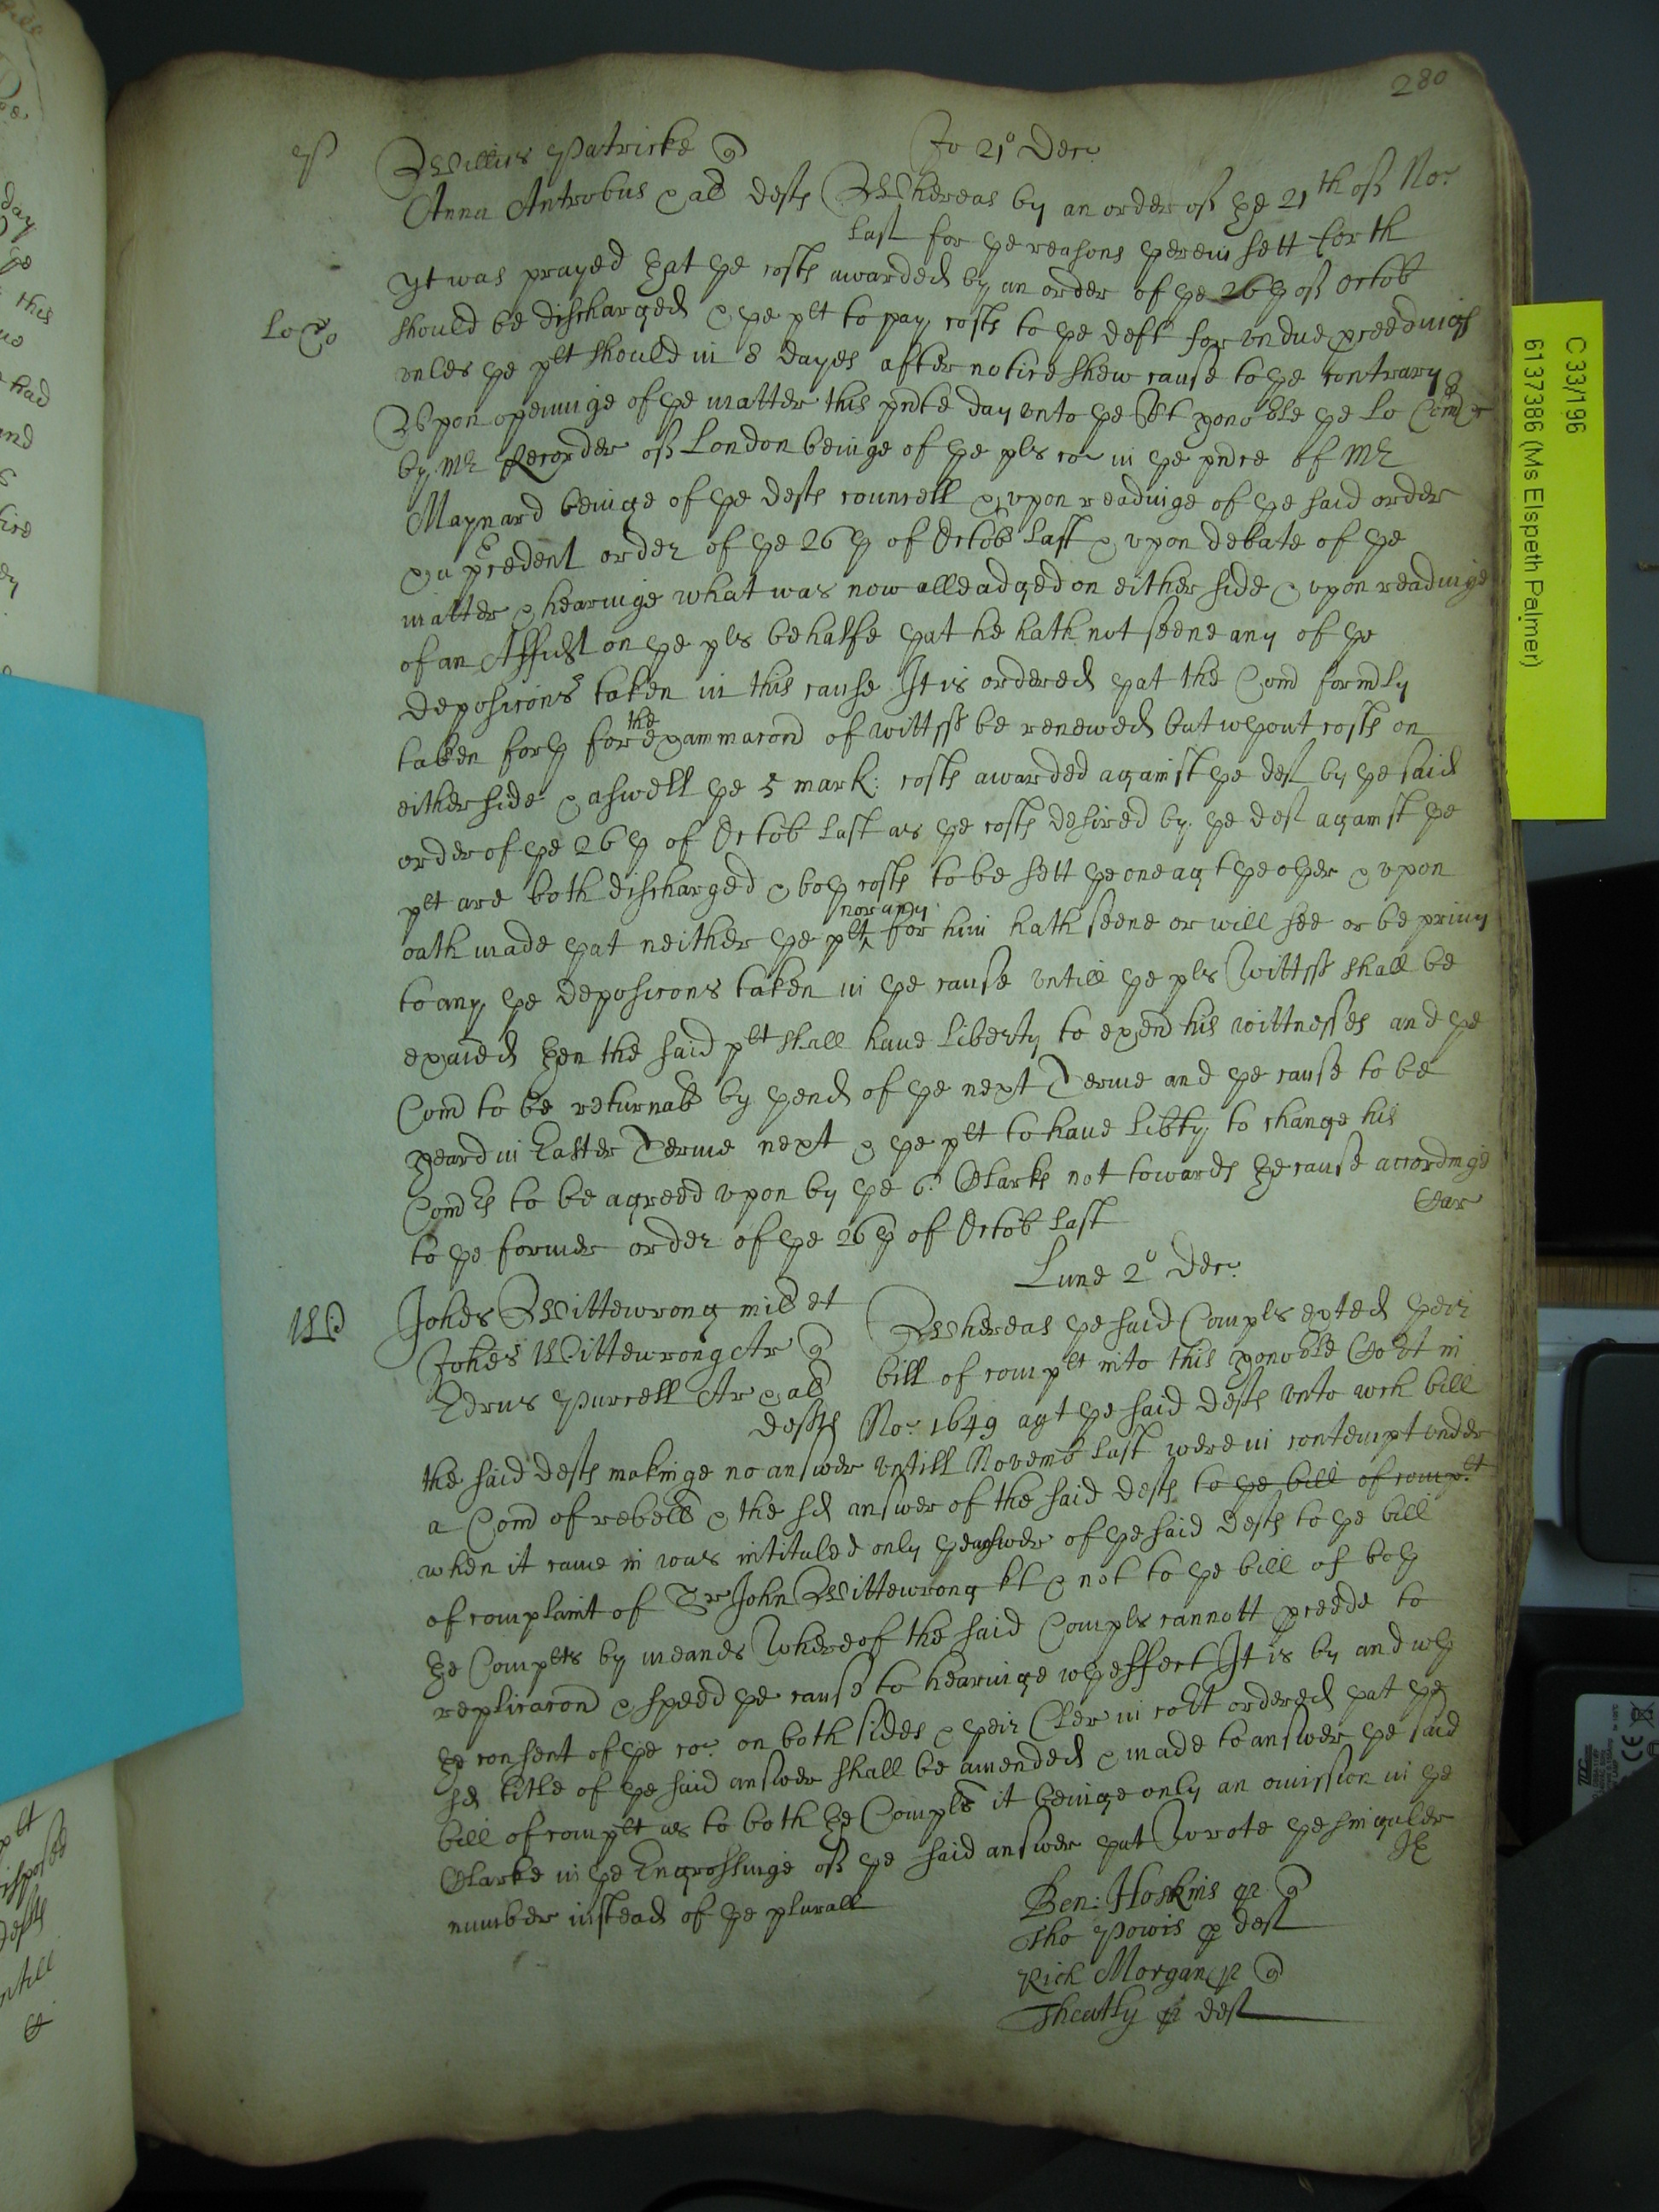 280
P
Willius Patricke q
Jo 21° Dec
Anna Antrobus & al defts Whereas by an order of ye 21th of No:
last for ye reasons yerein sett forth
yt was prayed yat ye costs awarded by an order of ye 26 y of Octob
Lo Co
should be discharged & ye plt to pay costs to ye deft for undue pceedings
unles ye plt should in 8 dayes after notice shew cause to ye contrary
Upon openinge of ye matter this pnte day unto ye Rt honoble ye Lo Comrs
by Mr Recorder of London beinge of ye pls co: in ye pnce of Mr
Maynard beinge of ye defts councell & upon readinge of ye said order
& a pcedent order of ye 26 y of Octob last & upon debate of ye
matter & hearinge what was now alleadged on either side & upon readinge
of an Affidt on ye pls behalfe yat he hath not seene any of ye
deposicons taken in this cause It is ordered yat the Com formly
taken fory for the examinacon of wittss be renewed but wyout costs on
either side & aswell ye 5 mark: costs awarded against ye deft by ye said
order of ye 26 y of Octob last as ye costs desired by ye deft against ye
plt are both discharged & boy costs to be sett ye one agt ye oyer & upon
oath made yat neither ye plt nor any for him hath seene or will see or be privy
to any ye deposicons taken in ye cause untill ye pls Wittss shall be
exaied yen the said plt shall have liberty to exem his wittnesses and ye
Com to be returnab by yend of ye next Terme and ye cause to be
heard in Easter Terme next & ye plt to have libty to change his
Comrs to be agreed upon by ye 6: Clarks not towards ye cause accordinge
to ye former order of ye 26 y of Octob last
Car
Lune 2° Dec:
W
Johes Wittewrong mil et
Johes Wittewrong Ar q
Edrus Purcell Ar & al
defts
Whereas ye said Compls exted yeir
bill of complt into this honoble Cort in
No: 1649 agt ye said defts unto wch bill
the said defts makinge no answer untill Novemb last were in contempt under
a Com of rebell & the sd answer of the said defts to ye bill of complt
when it came in was intituled only yeanswer of ye said defts to ye bill
of complaint of Sr John Wittewrong kt & not to ye bill of boy
ye Complts by meanes Whereof the said Compls cannott pceede to
replicacon & speed ye cause to hearinge wy effect It is by and wy
ye consent of ye co: on both sides & yeir Cler in cort ordered yat ye
sd title of ye said answer shall be amended & made to answer ye said
bill of complt as to both ye Compls it beinge only an omission in ye
Clarke in ye Engrossinge of ye said answer yat Wrote ye singuler
number instead of ye plurall
Ben: Hoskins p q
Tho Powis p deft
Rich Morgan p q
Theatly p deft
C 33/196
6137386 (Ms Elspeth Palmer)